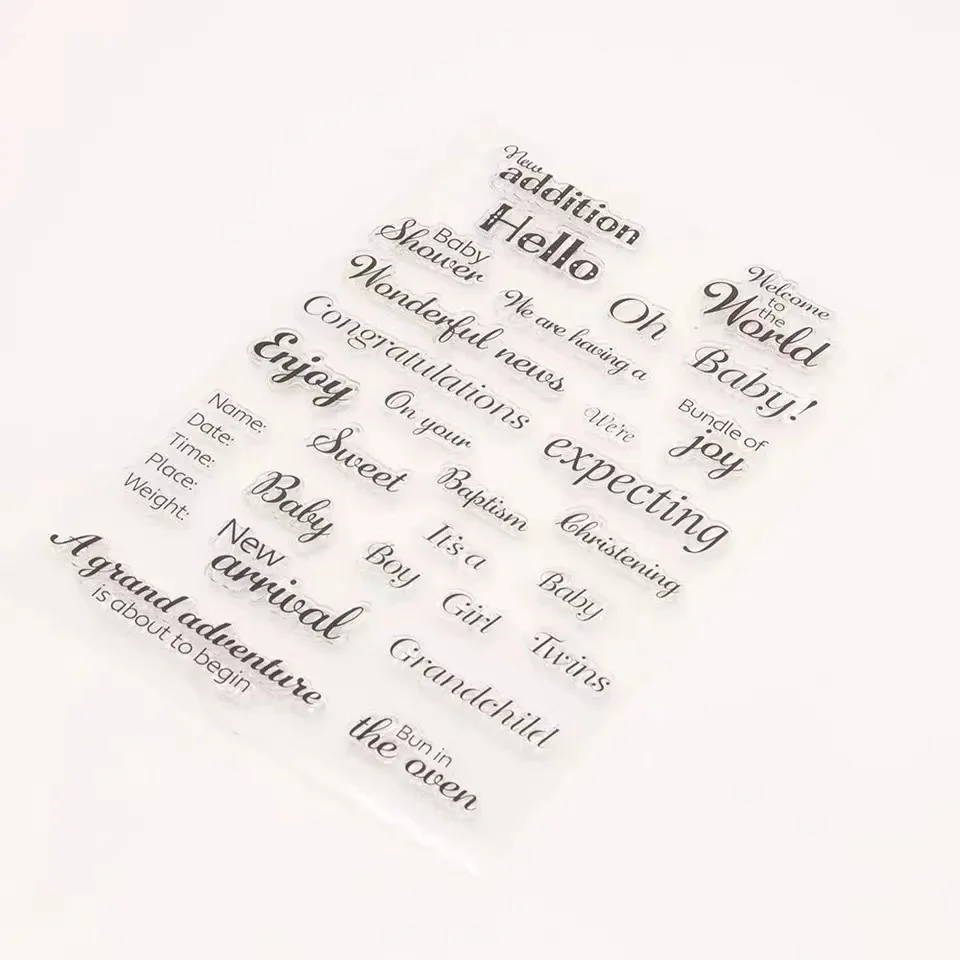 New
addition
Hello
Baby
Shower
Wonderful news
We are having a
Oh
Welcome
to
the
World
Baby!
Congratulations
Enjoy
On your
We're
expecting
Bundle of
joy
Name:
Date:
Time:
Place:
Weight:
Sweet
Baby
Baptism
Christening
New
arrival
It's a
Boy
Girl
Baby
Twins
Grandchild
A grand adventure
is about to begin
Bun in
the oven